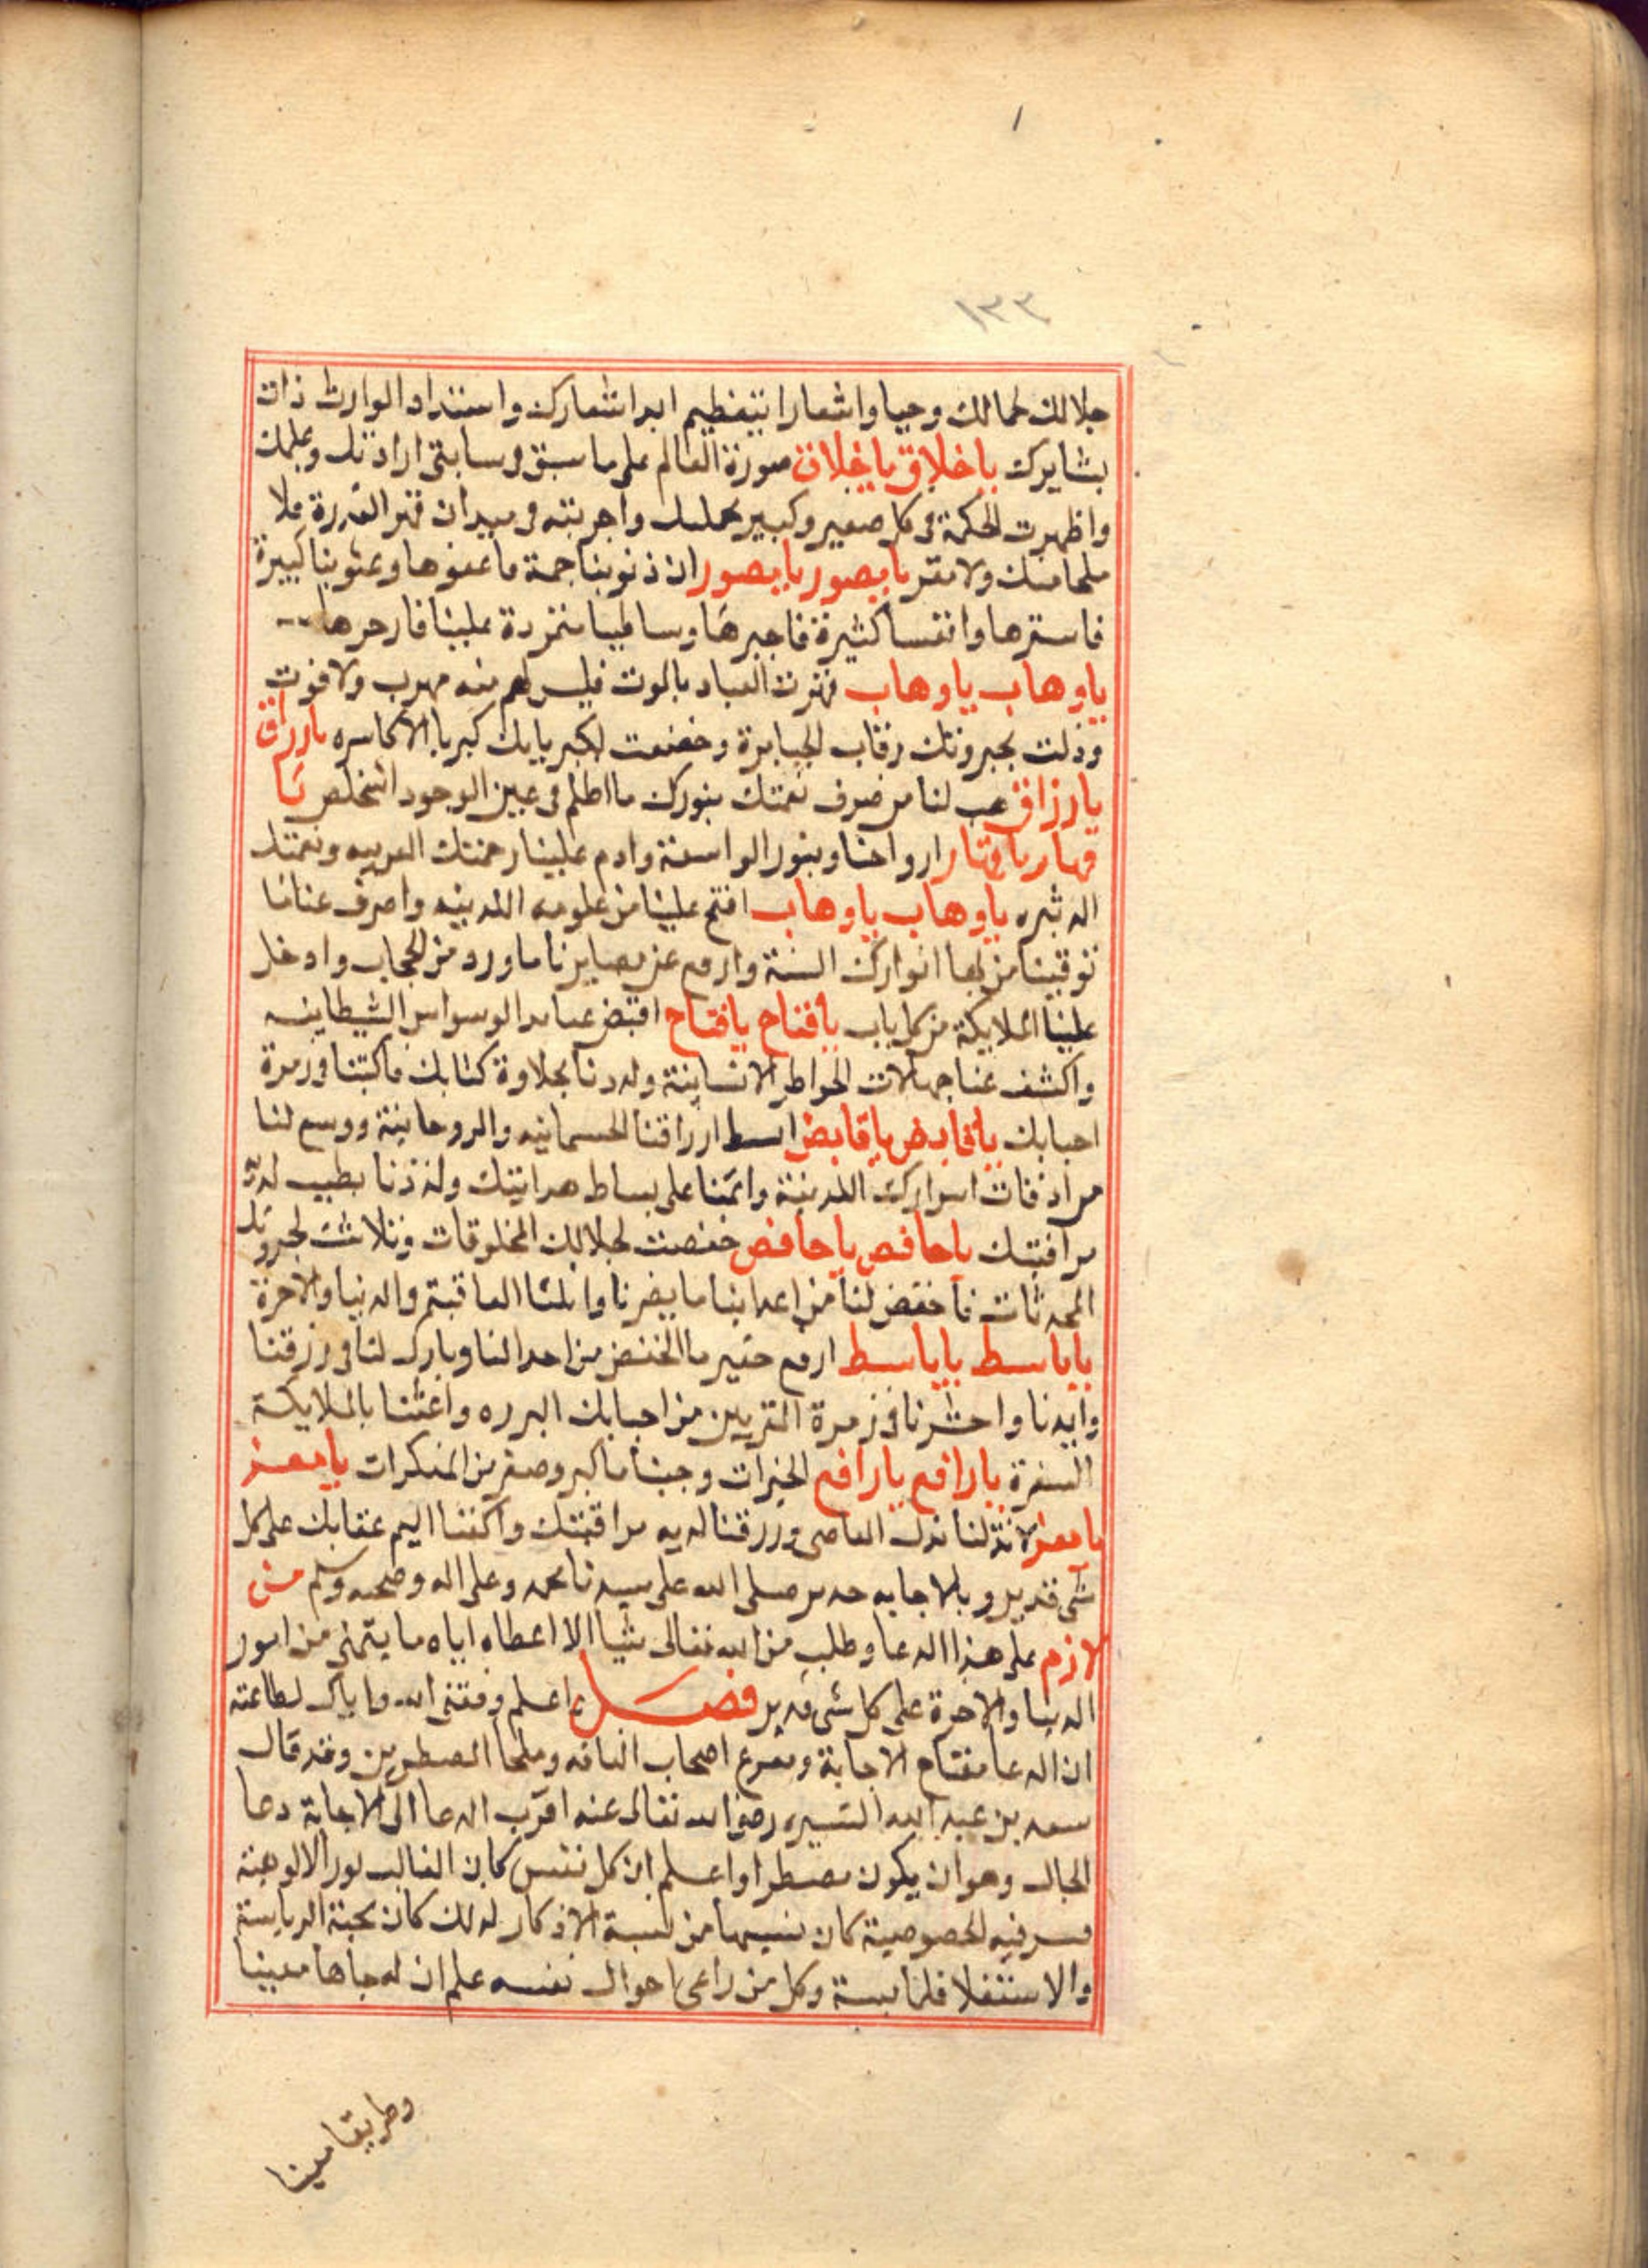 ١٣٣
جلالك لجمالك وحيا واشعارا بتعظيم ابداشعارك واستنداد الوارث ذات
بشايرك ياخلاق ياخلاق صورة العالم على ما سبق فى سابق ارادتك وعلمك
واظهرت الحكمة فى كل صغير وكبير واجريته فى ميدان قهر القدرة فلا
ملجا منك ولا مفر يامصور يامصور ان ذنوبنا جمة فاعفوها وعيوبنا كبيرة
فاسترها وانفسا كثيرة فاجبرها وساطيا متمردة علينا فازجرها
ياوهاب ياوهاب قهرت العباد بالموت فليس لهم منه مهرب ولا فوت
وذلت بجبروتك رقاب الجبابرة وخضعت لكبريايك كبريا الاكاسره يارزاق
يارزاق هب لنا من صرف نعمتك بنورك ما اظلم فى عين الوجود اشخلص يا
قهار ياقهار ارواحنا وبنور الواسعة وادم علينا رحمتك القريبه ونعمتك
ياوهاب ياوهاب افتح علينا من علومه اللدنيه واصرف عنانا
توقينا من بها انوارك السنة وارفع عن بصايرنا ما ورد من الحجاب وادخل
علينا الملايكة من كل باب يافتاح يافتاح اقبض عنا الوسواس الشيطانيه
واكشف عنا جهالات الخواطر الانسانية ولددنا بحلاوة كتابك فاكتبنا فى زمرة
احبابك ياقابض ياقابض ابسط ارزاقنا الجسمانيه والروحانية ووسع لنا
من اذقات اسرارك اللدنية واتمنا على بساط هدايتك ولذذنا بطيب لذة
مرافبتك ياخافض ياخافض خفضت لجلالك المخلوقات وتلاشت لجبروتك
المحدثات فاخفض لنا من اعداينا ما يضرنا وانلنا العاقبة والدنيا والاخرة
ياباسط ياباسط ارفع حقير ما انخفض من احوالنا وبارك لنا فى رزقنا
وايدنا واحشرنا فى زمرة المقربين من احبابك البرره واغثنا بالملايكة
السفرة يارافع يارافع الخيرات وجبنا ما كبر وصغر من المنكرات يامعز
يامعز لا تذلنا بذل المعاصى وارزقنا لديه مراقبتك واكفنا اليم عقابك على كل
شى قدير وبالاجابه جدير صلى الله على سيدنا محمد وعلى اله وصحبه وسلم من
لازم على هذا الدعا وطلب من الله تعالى شيا الا اعطاه اياه ما يتمنى من امور
الدنيا والاخرة على كل شى قدير فصل اعلم وفقنى الله واياك لطاعته
ان الدعا مفتاح الاجابة ومفزع اصحاب الفاقه وملجا المضطرين وقد قال
سعد بن عبد الله التسيره رضى الله تعالى عنه اقرب الدعا الى الاجابة دعا
الحال وهو ان يكون مضطرا واعلم ان كل نفس كان الغالب لور الالوهية
فيه الخصوصية كان نسيبها من نسبة الاذكار لذلك كان محبة الرياسة
والاستعلا فلنا بسة وكل من راعى احوال نفسه علم ان لها جاها معينا
وطريقا مبينا